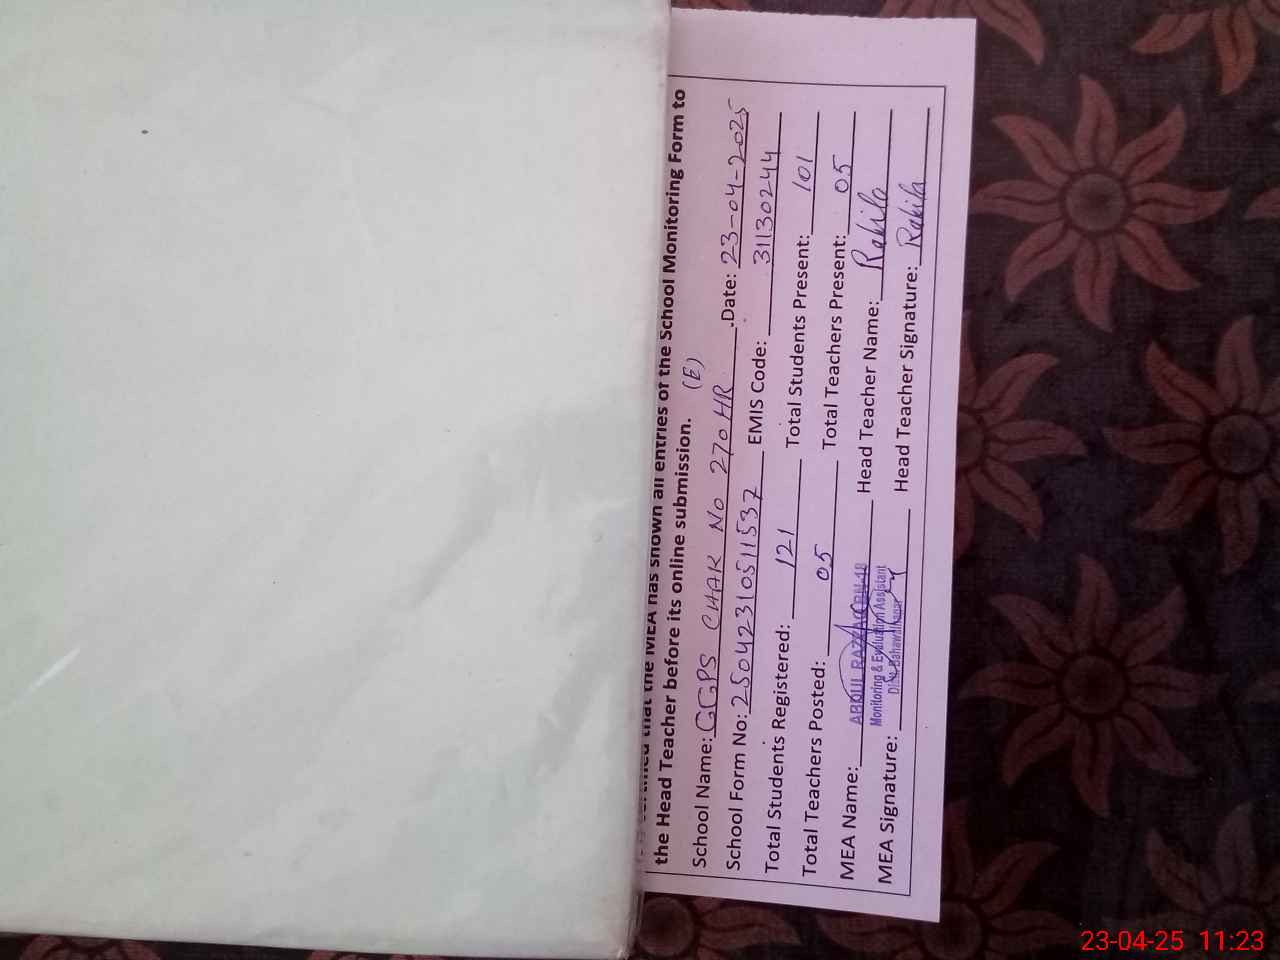 that the MEA has shown all entries of the School Monitoring Form to
the Head Teacher before its online submission. (E)
School Name: GGPS CHAK No 270 HR .Date: 23-04-2025
School Form No: 25042310511537 EMIS Code: 31130244
Total Students Registered: 121 Total Students Present: 101
Total Teachers Posted: 05 Total Teachers Present: 05
MEA Name: ABDUL RAZZAQ Head Teacher Name: Rahila
Monitoring & Evaluation Assistant
MEA Signature: Distt. Bahawalnagar Head Teacher Signature: Rahila
23-04-25 11:23